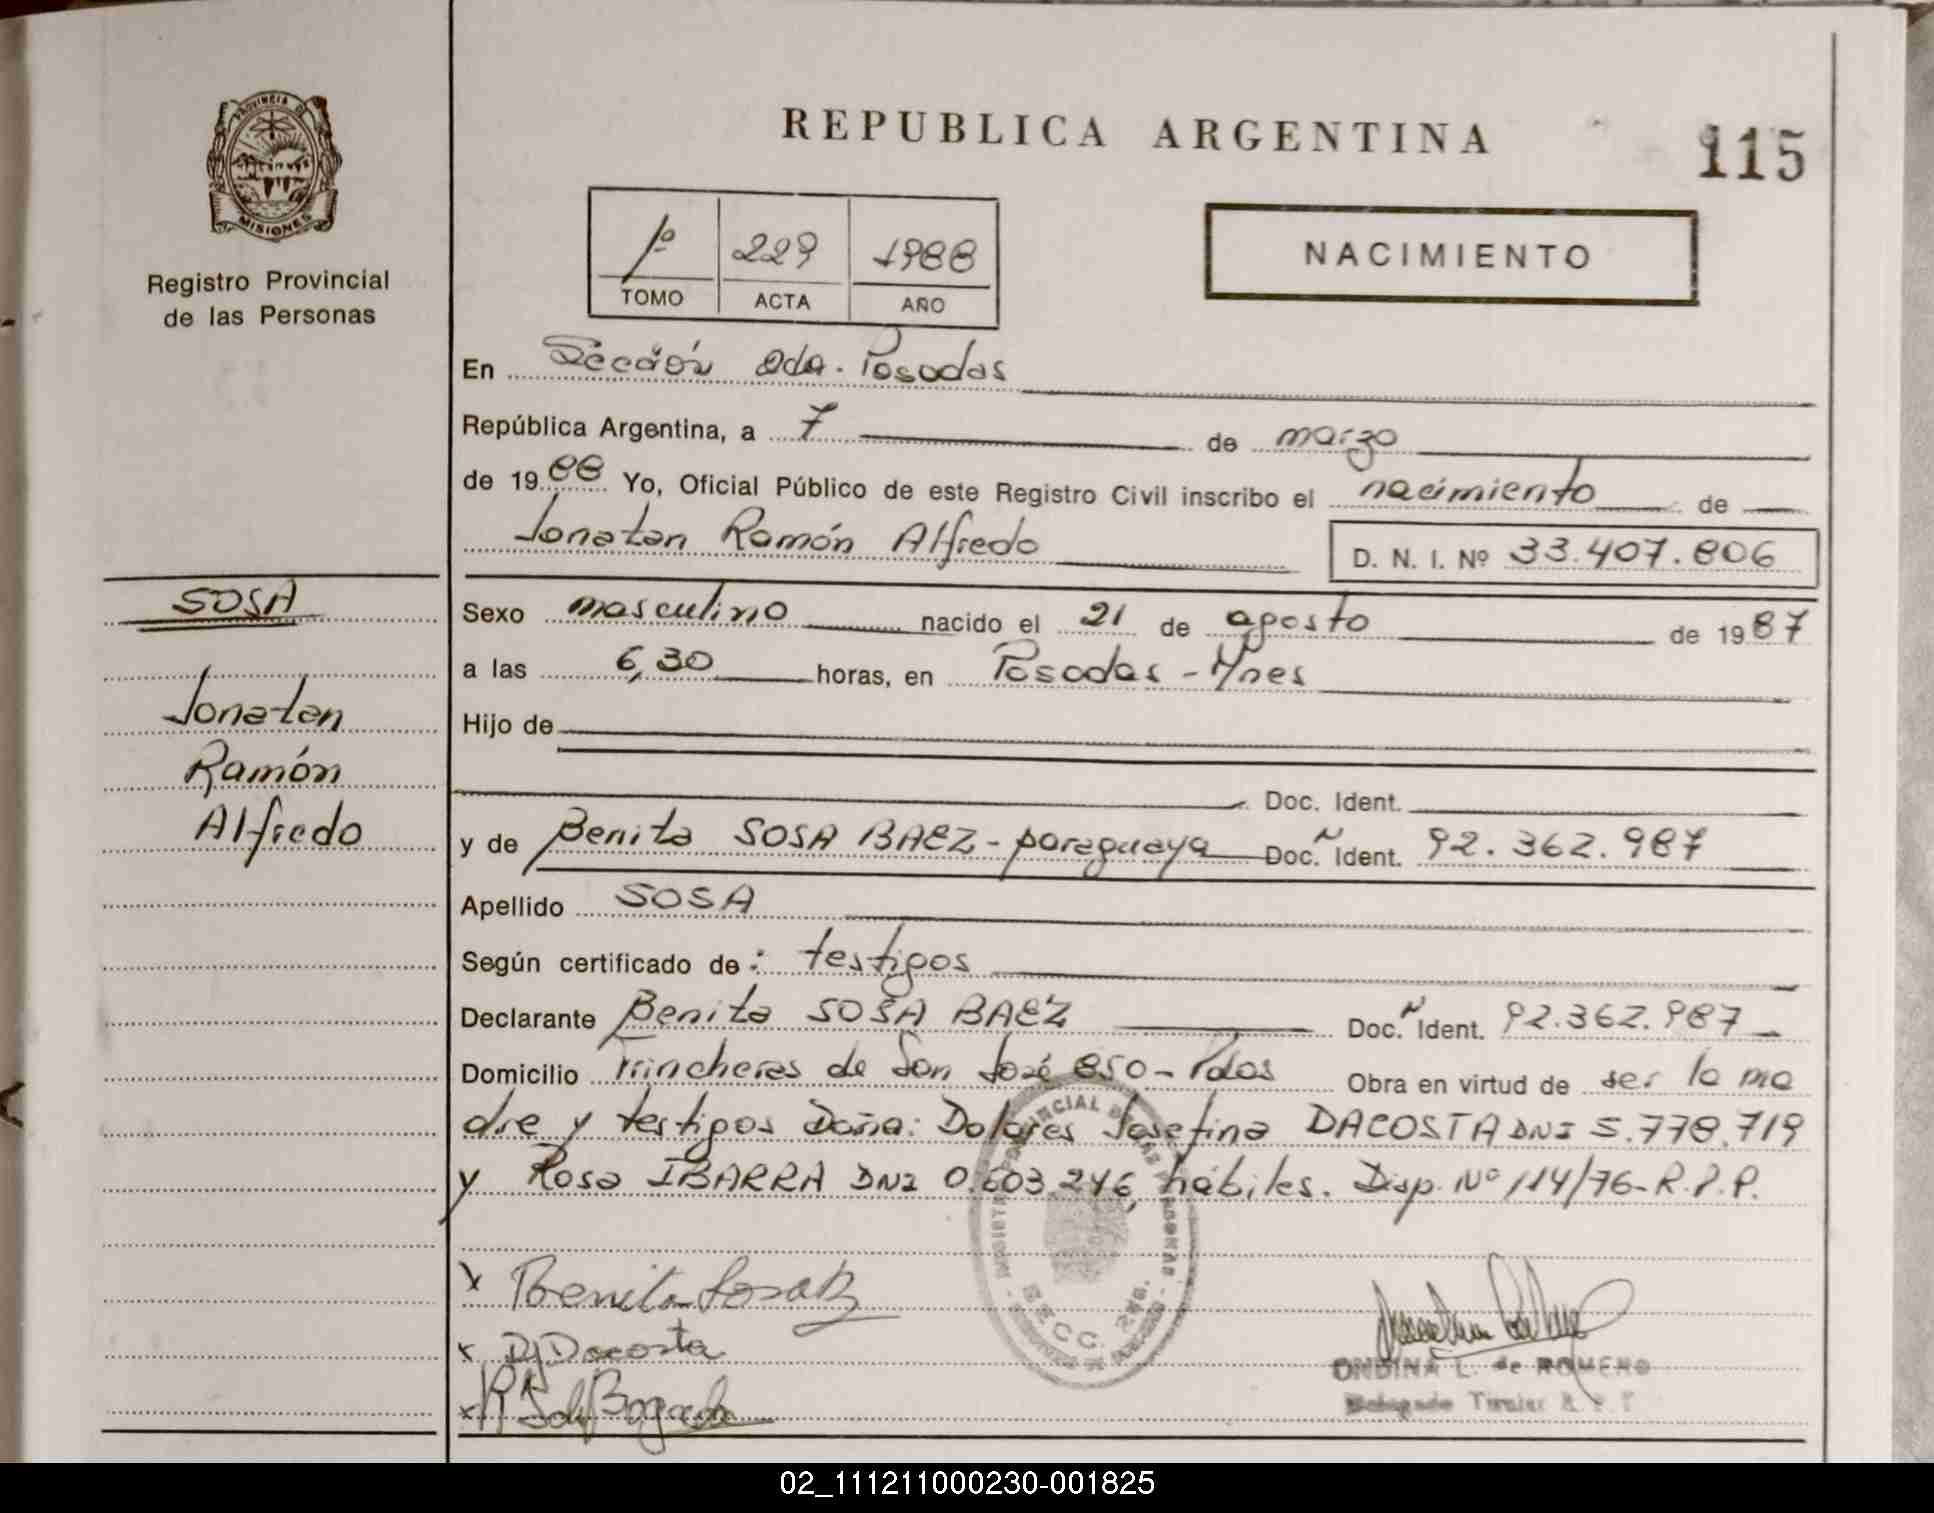 PROVINCIA DE
MISIONES
Registro Provincial
de las Personas
REPUBLICA ARGENTINA
115
1º 229 1988
TOMO ACTA AÑO
NACIMIENTO
En Sección 2da. Posadas
República Argentina, a 7 de marzo
de 1988 Yo, Oficial Público de este Registro Civil inscribo el nacimiento de
Jonatan Ramón Alfredo D. N. I. Nº 33.407.806
SOSA
Jonatan
Ramón
Alfredo
Sexo masculino nacido el 21 de agosto de 1987
a las 6,30 horas, en Posadas - Mnes
Hijo de
Doc. Ident.
y de Benita SOSA BAEZ - paraguaya Doc. Ident. 92.362.987
Apellido SOSA
Según certificado de: testigos
Declarante Benita SOSA BAEZ Doc. Ident. 92.362.987
Domicilio Trincheras de San José 850 - Pdas Obra en virtud de ser la ma
dre y testigos Doña: Dolores Josefina DACOSTA DNI 5.778.719
y Rosa IBARRA DNI 0.603.246, hábiles. Disp. Nº 114/76-R.P.P.
Benita Sosa B
D J Dacosta
ONDINA L. de ROMERO
Delegado Titular R. P. P.
SECC. 2da.
02_111211000230-001825